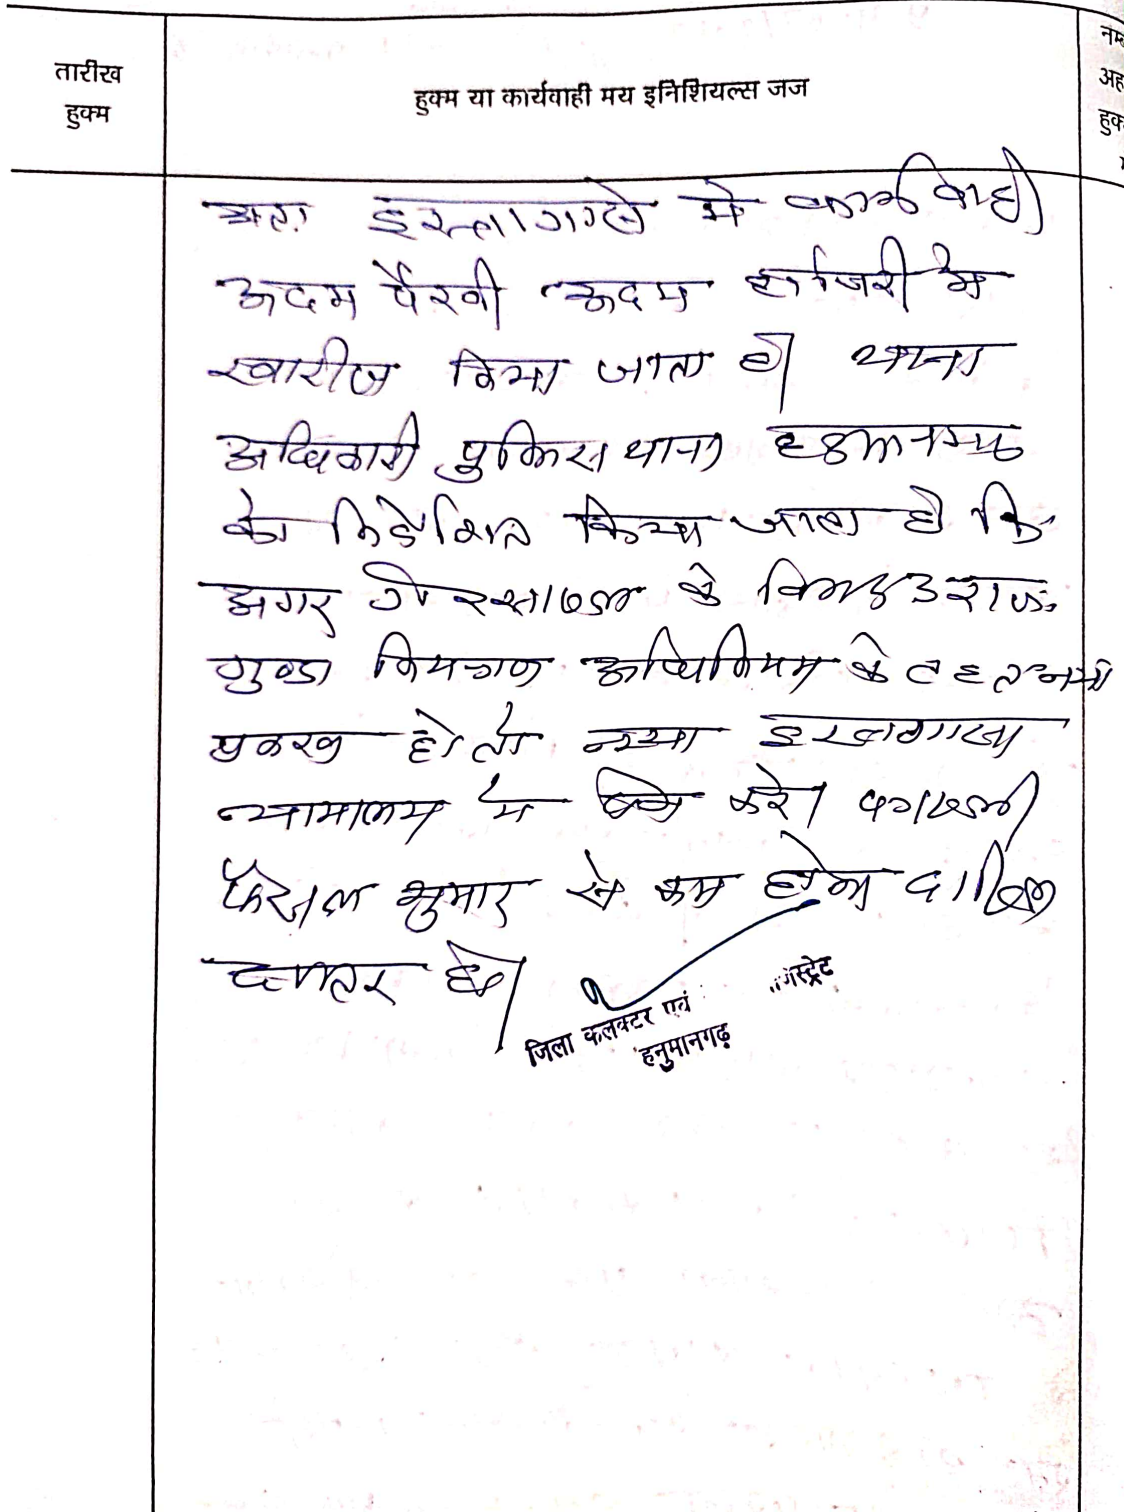 तारीख
हुक्म
हुक्म या कार्यवाही मय इनिशियल्स जज
अतः इस्तागासे में कार्यवाही
अदम पैरवी अदम हाजिरी में
खारीज किया जाता है। थाना
अधिकारी पुलिस थाना
को निर्देशित किया जाता है कि
अगर गैरसायल के विरूद्ध राज.
गुण्डा नियन्त्रण अधिनियम के तहत
प्रकरण हो तो नया इस्तगासा
न्यायालय में पेश करे। पत्रावली
फैसल शुमार से कम होकर दाखिल
दफ्तर हो।
जिला कलक्टर एवं
हनुमानगढ़